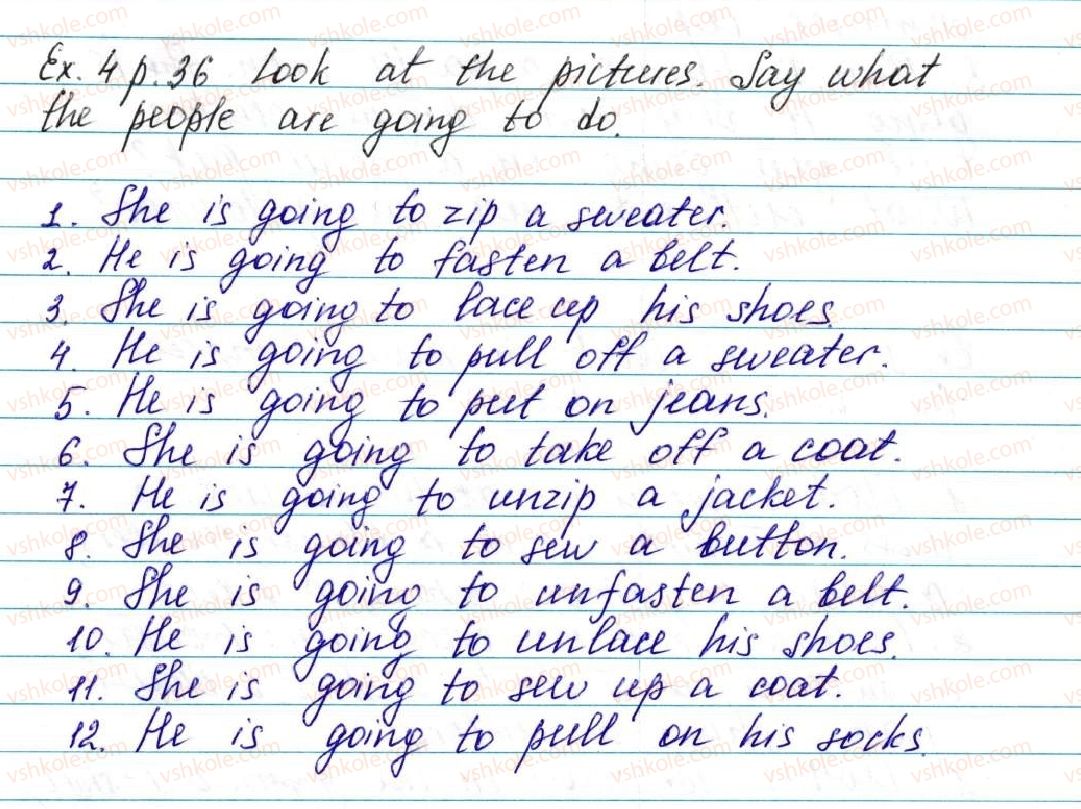 Ex. 4 p. 36 Look at the pictures. Say what
the people are going to do.
1. She is going to zip a sweater.
2. He is going to fasten a belt.
3. She is going to lace up his shoes.
4. He is going to pull off a sweater.
5. He is going to put on jeans.
6. She is going to take off a coat.
7. He is going to unzip a jacket.
8. She is going to sew a button.
9. She is going to unfasten a belt.
10. He is going to unlace his shoes.
11. She is going to sew up a coat.
12. He is going to pull on his socks.
vshkole.com